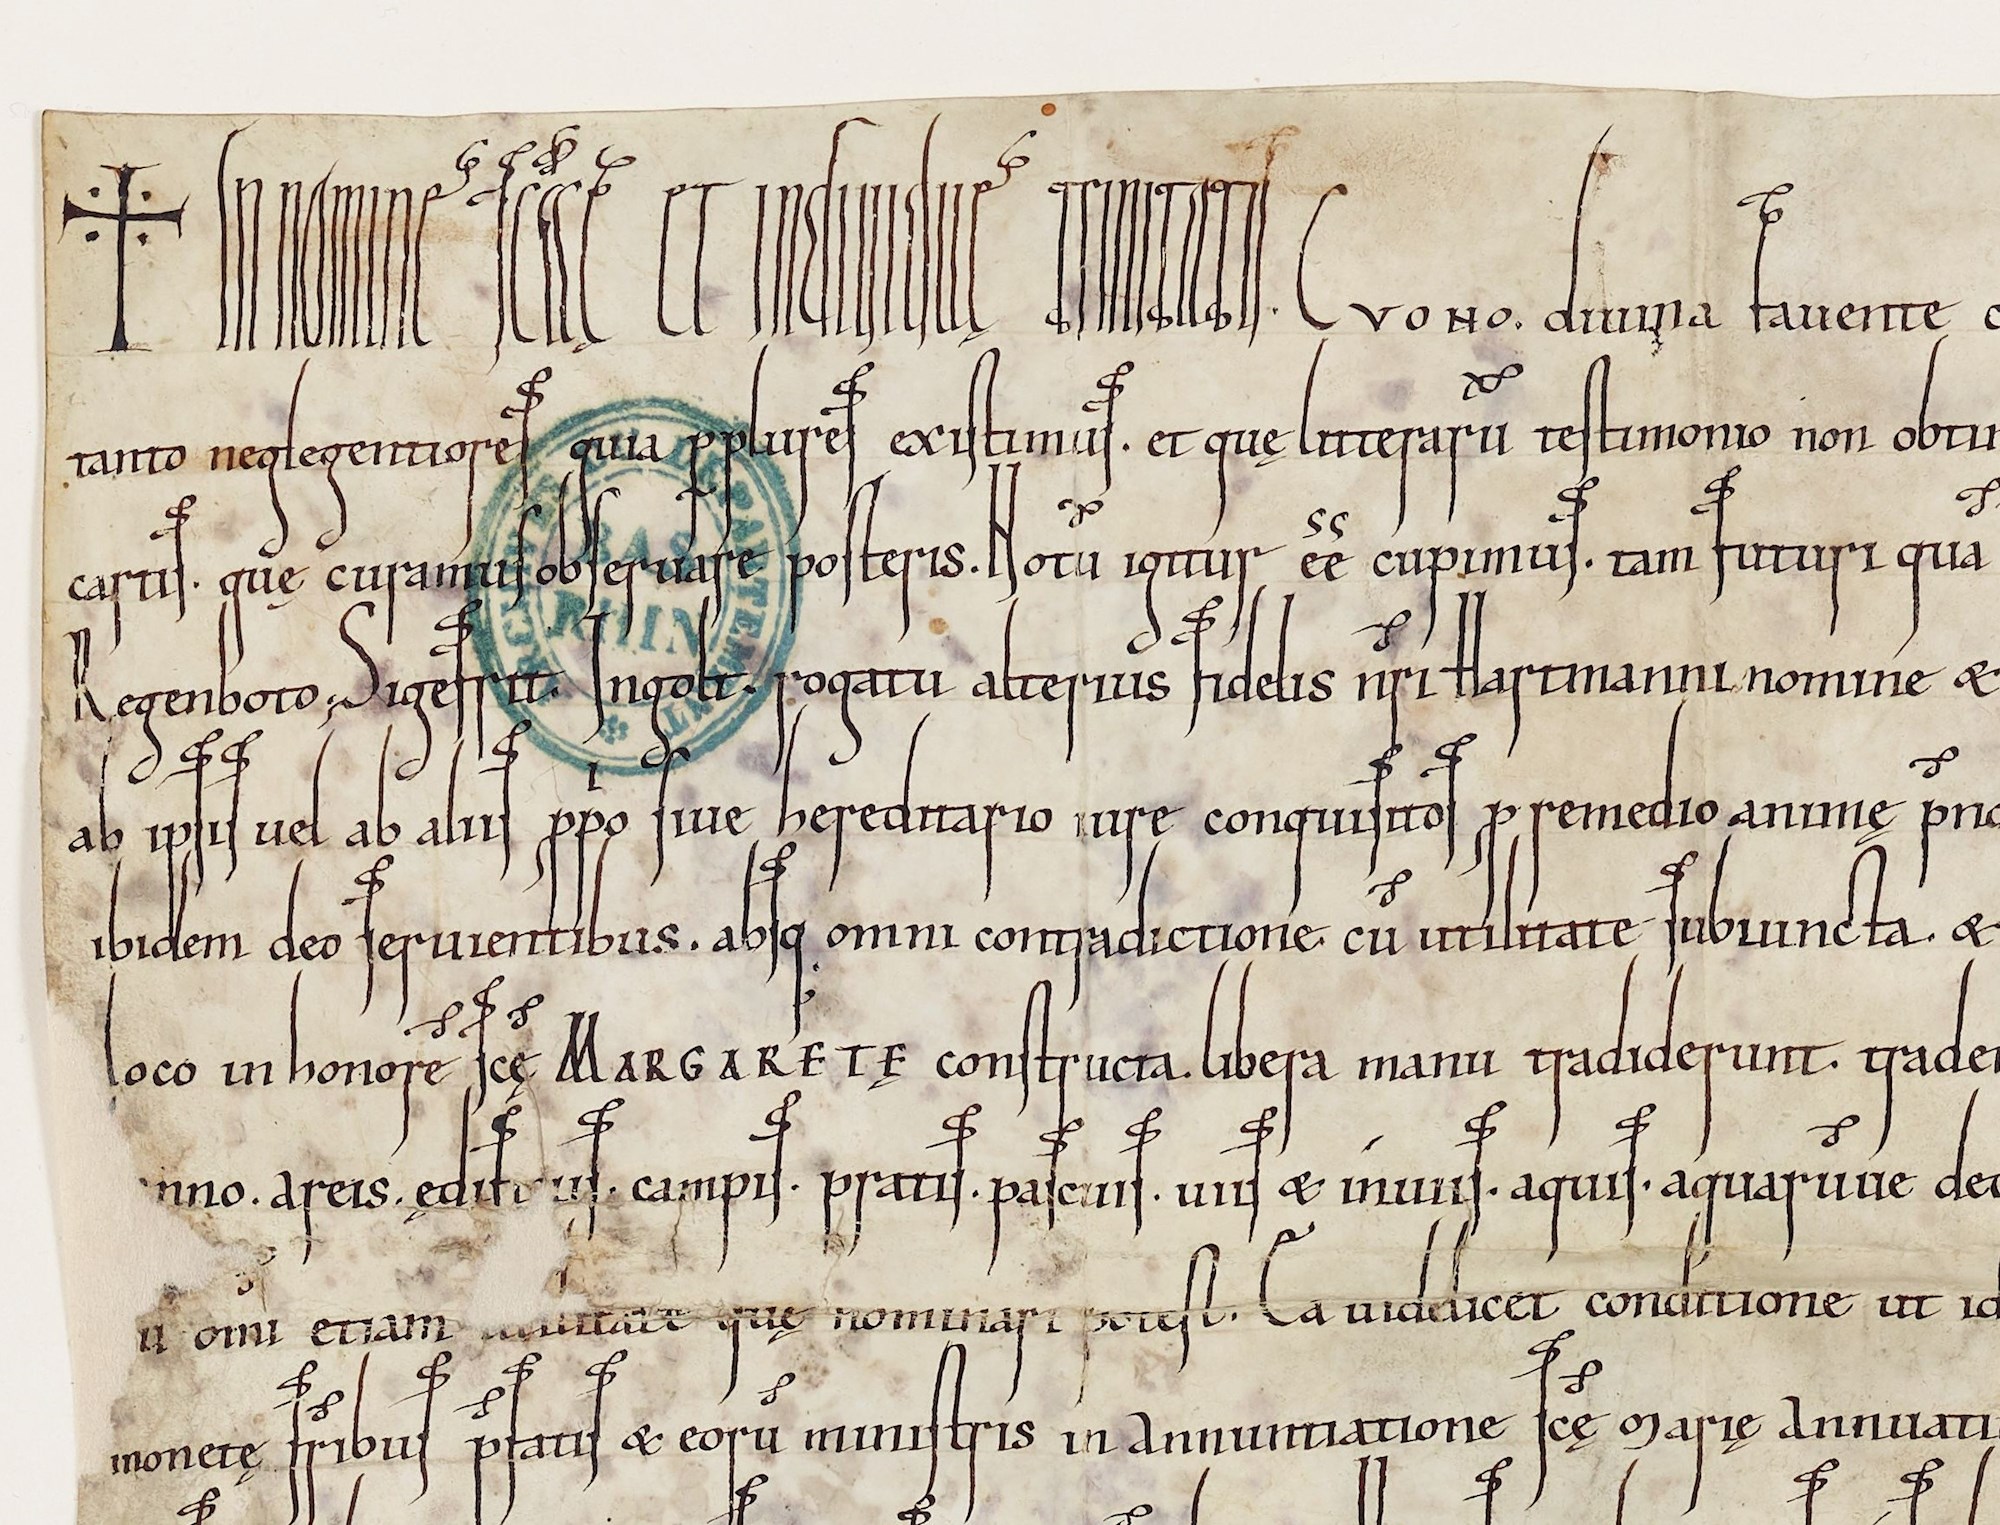 In nomine scę et indiuiduę trinitatis. Cvono. diuina fauente c
tanto neglegentiores quia pplures existimus. et quę litterarū testimonio non obtin
cartis. quę curamus obseruare posteris. Notū igitur ēē cupimus. tam futuri qua
Regenboto, Sigefrit. Ingolt. rogatu alterius fidelis nr̄i Hartmanni nomine &
ab ipsis uel ab aliis ppo siue hereditario iure conquisitos p remedio animę
ibidem deo seruientibus. absq; omni contradictione. cū utilitate subiuncta. &
loco in honore scę MARGARETĘ constructa. libera manu tradiderunt. trader
nno. areis. ędificiis. campis. pratis. pascuis. uiis & inuiis. aquis. aquarūue dec
u om̄i etiam utilitate quę nominari potest. Ea uidelicet conditione ut id
monetę fribus pstatis & eorū ministris in Annuntiatione scę Marię Annuati
ARCHIVES DÉPARTEMENTALES
BAS
RHIN